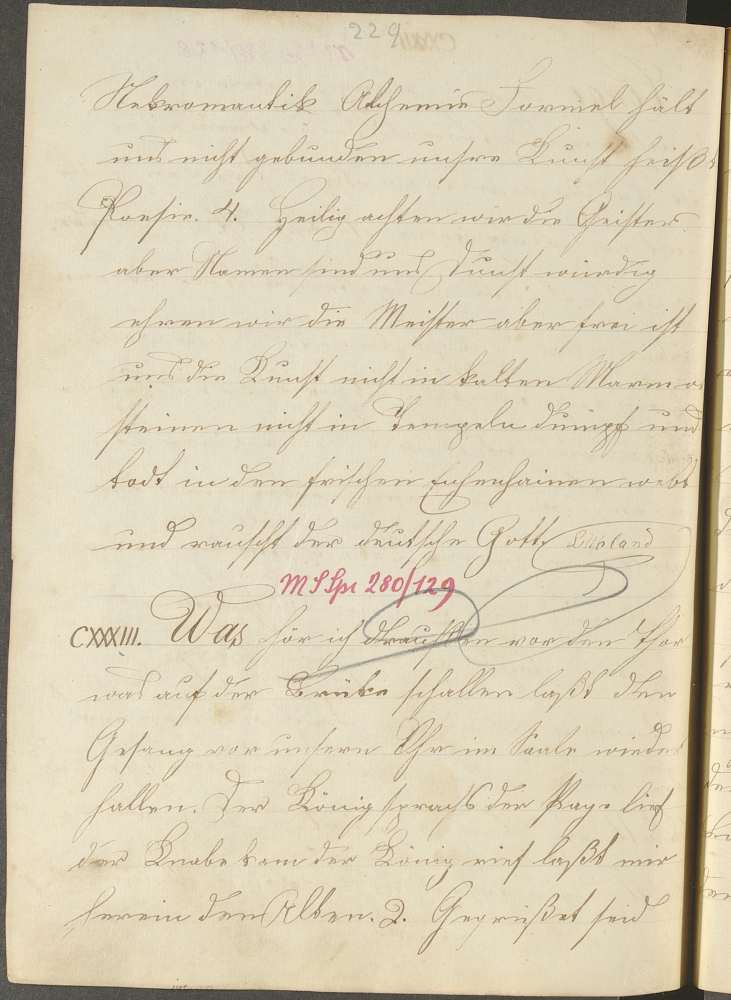 229
Nekromantik Alchemie Formel hält
uns nicht gebunden unsre Kunst heißt
Poesie. 4. Heilig achten wir die Geister
aber Namen sind uns Dunst würdig
ehren wir die Meister aber frei ist
uns die Kunst nicht in kalten Marmor
steinen nicht in Tempeln dumpf und
todt in den frischen Eichenhainen webt
und rauscht der deutsche Gott.
MSSpr 280/129
CXXXIII. Was hör ich draußen vor den Thor
was auf der Brücke schallen laßt den
Gesang vor unsern Ohr im Saale wieder
hallen. Der König sprachs der Page lief
der Knabe kam der König rief laßt mir
herein den Alten. 2. Gegrüßet seid